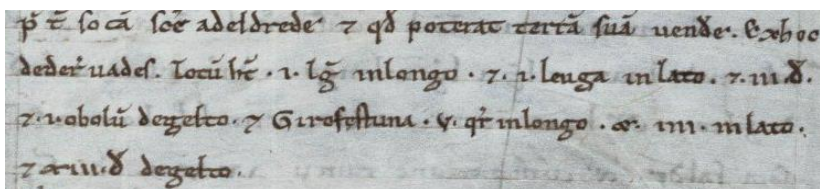 p̄ t̄ socā sc̄e adeldrede ⁊ qđ poterat terrā suā uende. Ex hoc
deder̄ uades. Locū ht̄ · i · lḡ in longo · ⁊ · i · leuga in lato. ⁊ · iii · đ.
⁊ · i · obolū de gelto. ⁊ Girofestuna · v · qr̄ in longo · ⁊ · iiii · in lato.
⁊ xiii · đ de gelto.